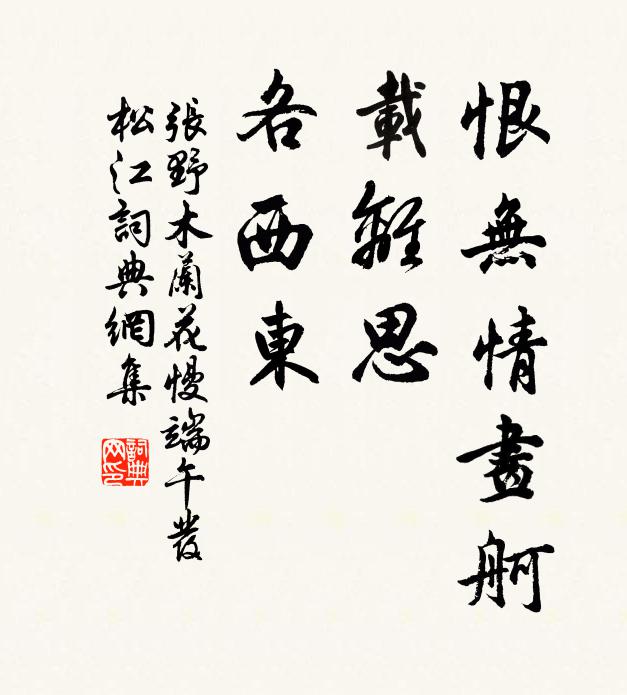 恨無情畫舸
載離思
各西東
張野木蘭花慢端午發
松江詞典網集
詞典网印